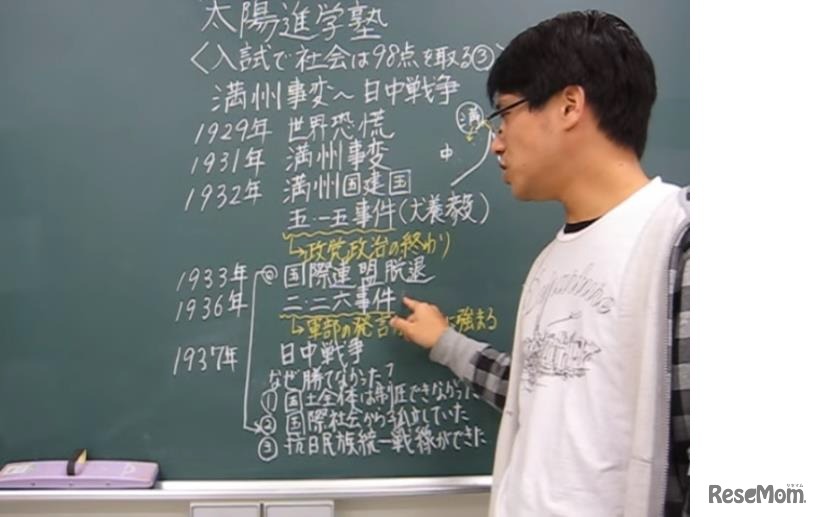 太陽進学塾
〈入試で社会は98点を取る③〉
満州事変～日中戦争
1929年 世界恐慌
1931年 満州事変
1932年 満州国建国
五・一五事件(犬養毅)
↳政党政治の終わり
1933年 国際連盟脱退
1936年 二・二六事件
↳軍部の発言 に強まる
1937年 日中戦争
なぜ勝てなかった?
① 国土全体は制圧できなかった
② 国際社会から孤立していた
③ 抗日民族統一戦線ができた
満
中
ReseMom.
リセマム